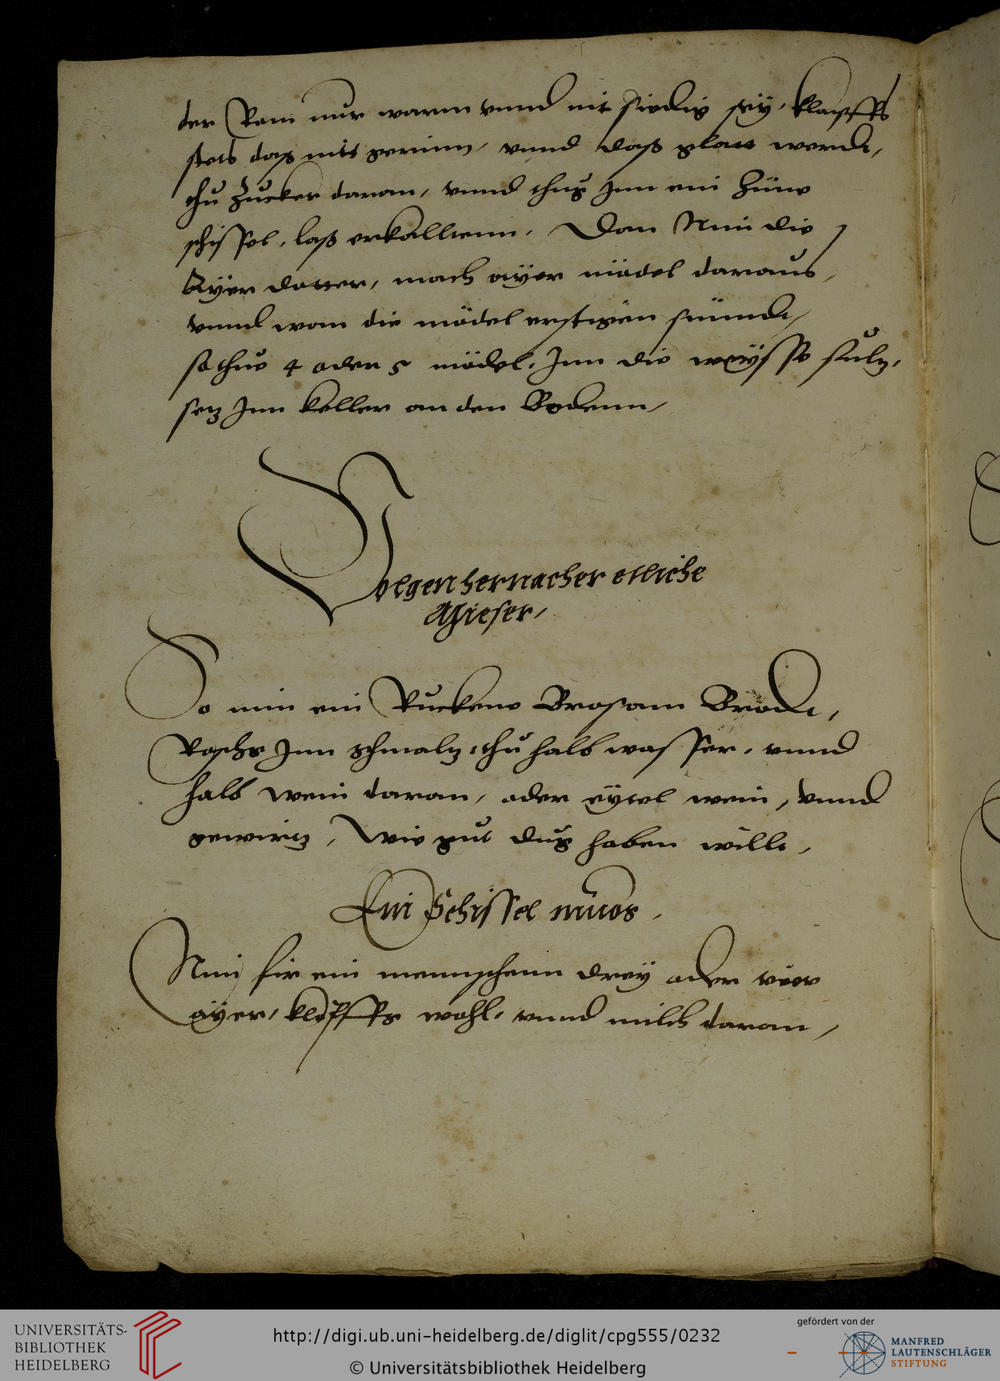 der Ram nur warm vnnd nit siedig sey, klopffs
stets das nits gerinn, vnnd das glatt werde,
thu Zucker daran, vnnd thus Jnn ein Züne
schissel, laß erkalltenn, Dan Nim die
Ayer dotter, mach ayer nüdel daraus,
vnnd wan die nüdel erstigen sinndt,
so thue 4 oder 5 nüdel, Jnn die weysse sulz,
setz Jnn keller an den Bodenn,
Volgen hernacher etliche
Mieser,
So nim ein Ruckene Brosam Brodt,
Röschs Jnn schmalz, thu halb wasser, vnnd
halb wein daran, oder eytel wein, vnnd
gewirtz, Wie gut dus haben willt,
Ein Schissel muos,
Nim fir ein mennschenn drey oder vier
ayer, klopffs wohl, vnnd milch daran,
UNIVERSITÄTS-
BIBLIOTHEK
HEIDELBERG
http://digi.ub.uni-heidelberg.de/diglit/cpg555/0232
© Universitätsbibliothek Heidelberg
gefördert von der
MANFRED
LAUTENSCHLÄGER
STIFTUNG